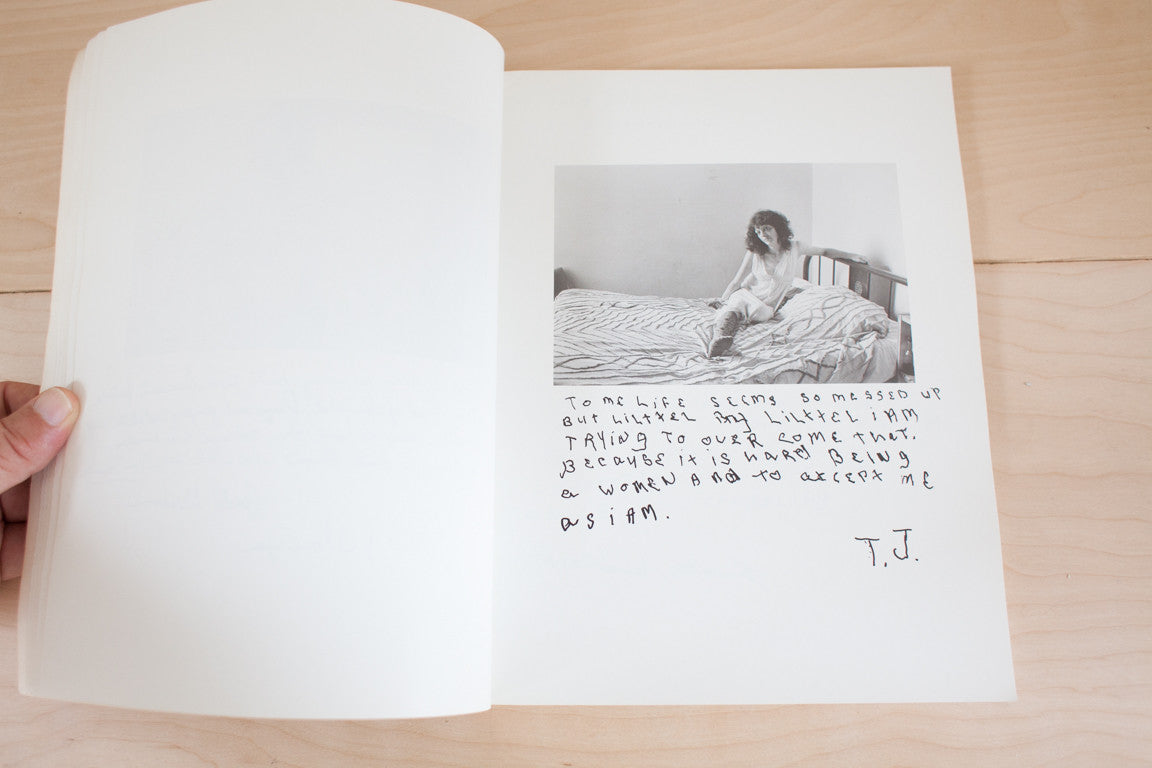 To me Life seems so messed up
But Lilttel By Lilttel i AM
TRYing To over come that.
Because it is hard Being
a women And to accept me
as i AM.
T.J.